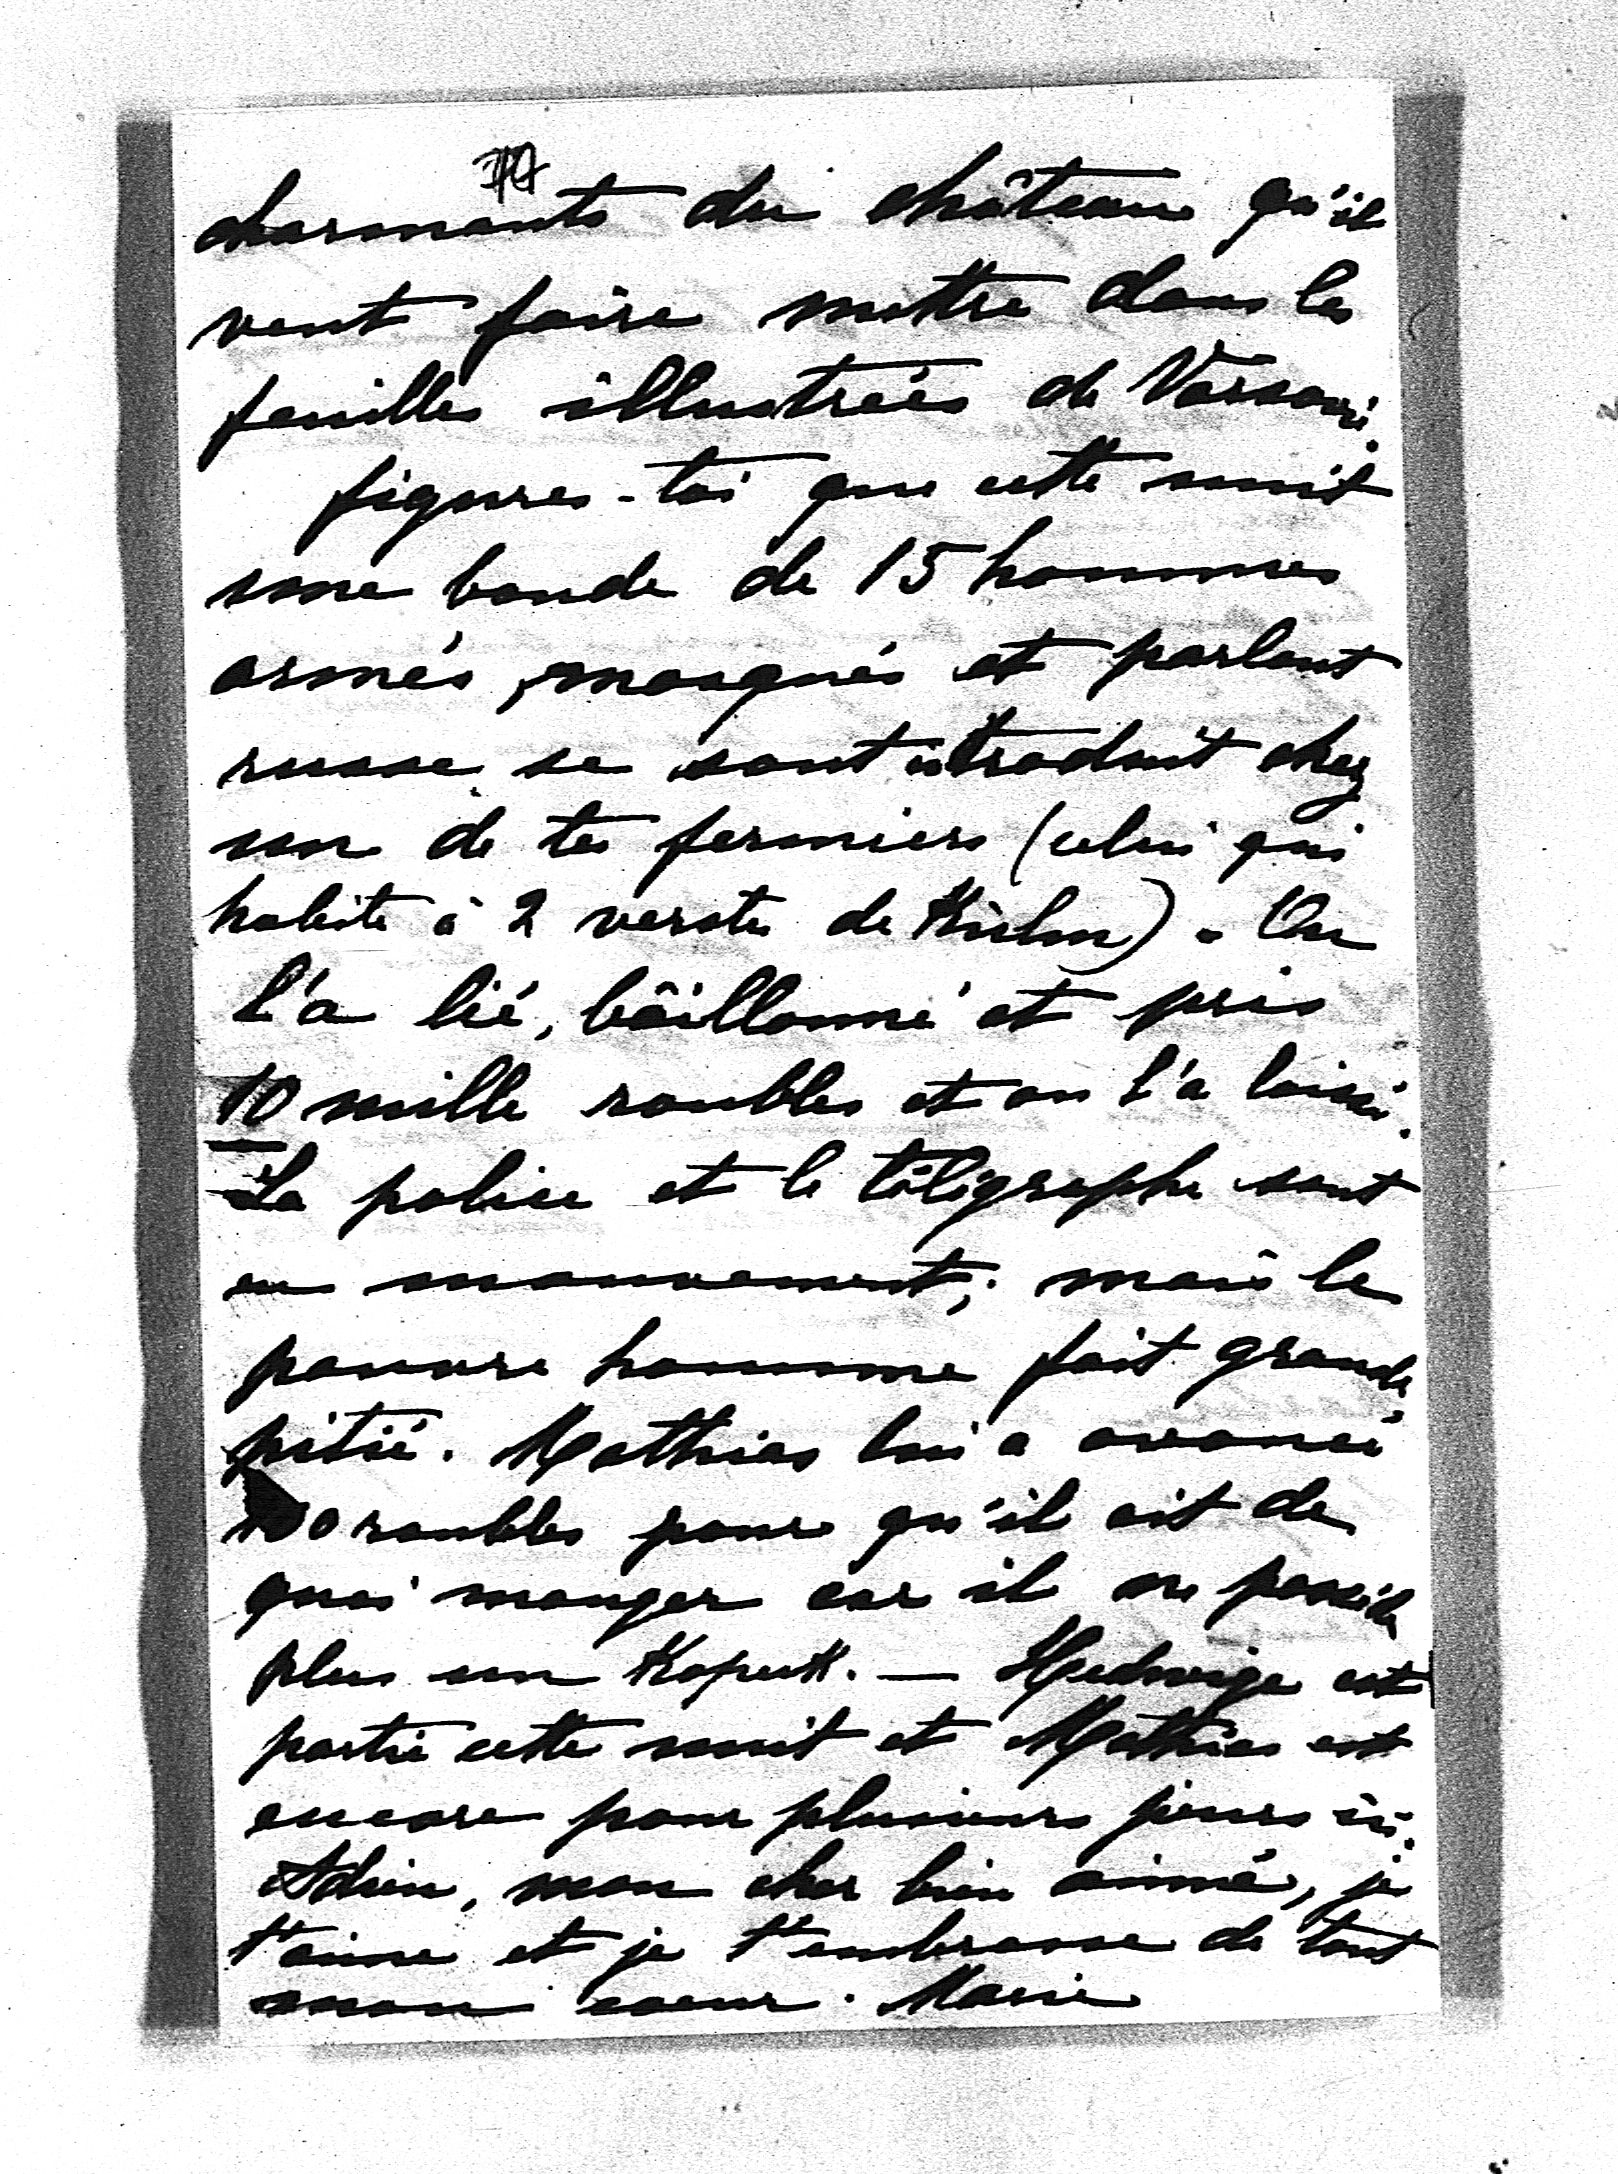 charmants du château qu'il
veut faire mettre dans les
feuilles illustrées de Varsovie.
figures-toi que cette nuit
une bande de 15 hommes
armés, masqués et parlant
russe se sont introduit chez
un de tes fermiers (celui qui
habite à 2 verstes de). On
l'a lié, bâillonné et pris
10 mille roubles et on l'a laissé.
La police et le télégraphe sont
en mouvement; mais le
pauvre homme fait grande
pitié. Mathias lui a avancé
100 roubles pour qu'il ait de
quoi manger car il ne possède
plus un Kopeck. — Hedwige est
partie cette nuit et Mathias est
encore pour plusieurs jours ici.
Adrien, mon cher bien aimé, je
t'aime et je t'embrasse de tout
mon coeur. Marie